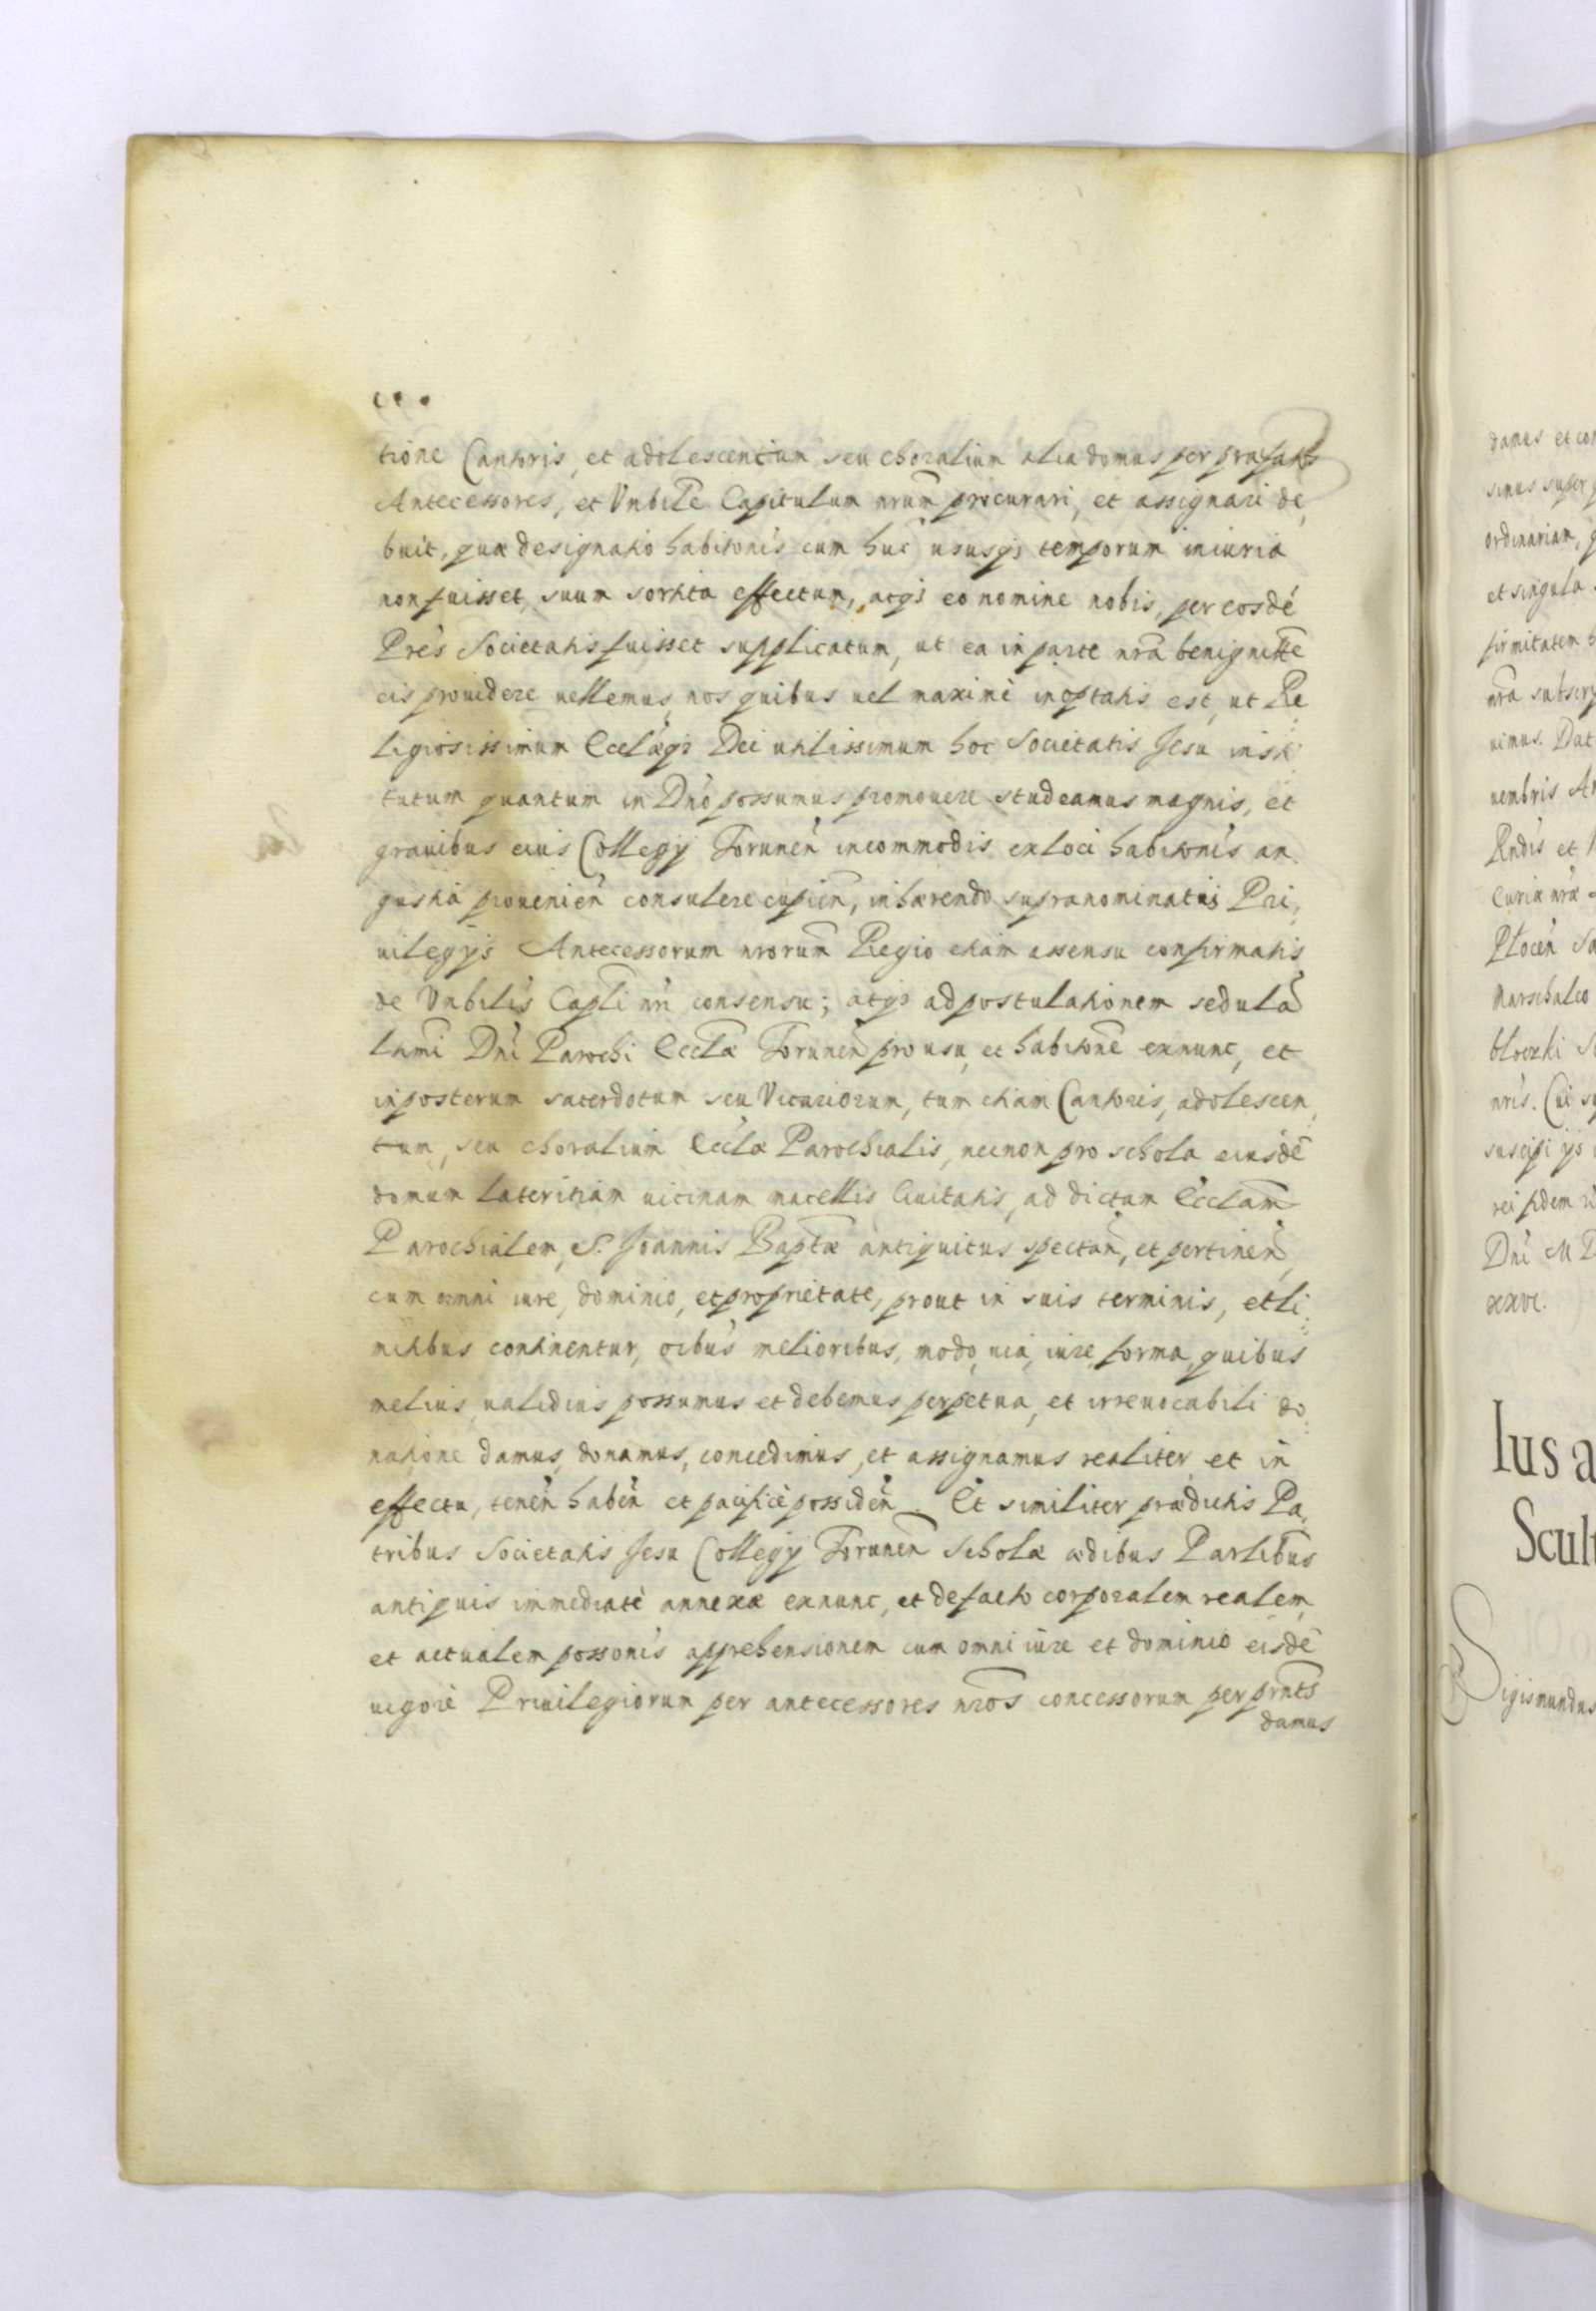 tione Cantoris, et adolescentum seu choralium alia domus per præfatos
Antecessores, et Vnbile Capitulum nrum procurari, et assignari de,
buit, quæ designatio habitonis cum huc ususq; temporum iniuria
non fuisset suum sortita effectum, atq; eo nomine nobis, per eosdē
Pres Societatis fuisset supplicatum, ut ea in parte nra benignitte
eis prouidere uellemus, nos quibus uel maximè in optatis est, ut Re
ligiosissimum Ecclæq; Dei utilissimum hoc Societatis Jesu insti
tutum quantum in Dno possumus promouere studeamus magnis, et
grauibus eius Collegij Torunen incommodis ex loci habitonis an
gustia prouenien consulere cupien, inhærendo supranominatis Pri,
uilegijs Antecessorum nrorum Regio etiam assensu confirmatis
de Vnbilis Capli nri consensu; atq; ad postulationem sedulā
Dni Parochi Ecclæ Torunen pro usu, et habitone exnunc, et
inposterum sacerdotum seu Vicariorum, tum etiam Cantoris, adolescen,
tum, seu choralium Ecclæ Parochialis, necnon pro schola eiusdē
domum lateritiam uicinam macellis Ciuitatis, ad dictam Ecclam
Parochialem, S. Joannis Baptæ antiquitus spectan, et pertinen,
cum omni iure, dominio, et proprietate, prout in suis terminis, et li
mitibus continentur, oibus melioribus, modo, uia, iure, forma, quibus
melius, ualidius possumus et debemus perpetua, et irreuocabili do
natione damus, donamus, concedimus, et assignamus realiter, et in
effectu, tenen haben et pacificè possiden. Et similiter prædictis Pa,
tribus Societatis Jesu Collegij Torunen Scholæ ædibus Parlibus
antiquis immediatè annexæ exnunc, et de facto corporalem realem,
et actualem possonis apprehensionem cum omni iure et dominio eisdē
uigore Priuilegiorum per antecessores nros concessorum per prnts
damus
danus et con
simus super
ordinariam,
et singula
firmitatem
nra subscrip
uimus. Dat
uembris
Rndis et
Curiæ nræ
Plocen
Marschalco
nris. Cui
suscipi
rei fidem
Dni
Ius a
Scult
Sigismundus